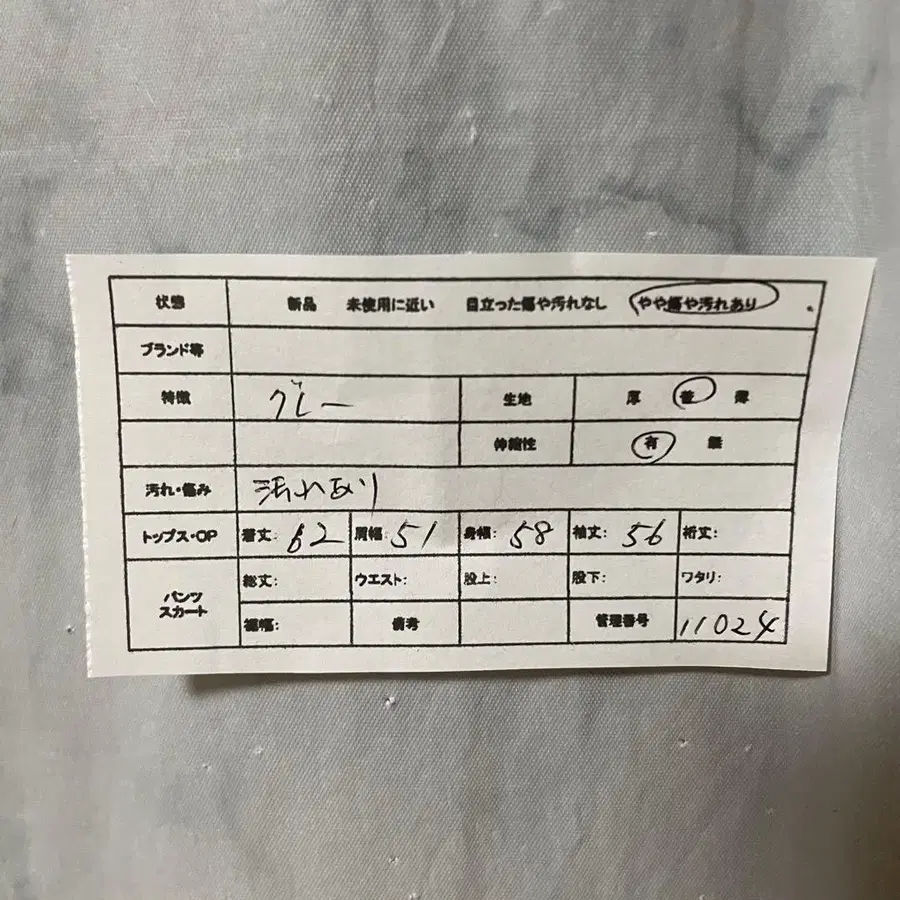 状態 新品 未使用に近い 目立った傷や汚れなし やや傷や汚れあり
ブランド等
特徴 グレー 生地 厚 普 薄
伸縮性 有 無
汚れ・傷み 汚れあり
トップス・OP 着丈: 62 肩幅: 51 身幅: 58 袖丈: 56 裄丈:
パンツ スカート 総丈: ウエスト: 股上: 股下: ワタリ:
裾幅: 備考 管理番号 11024